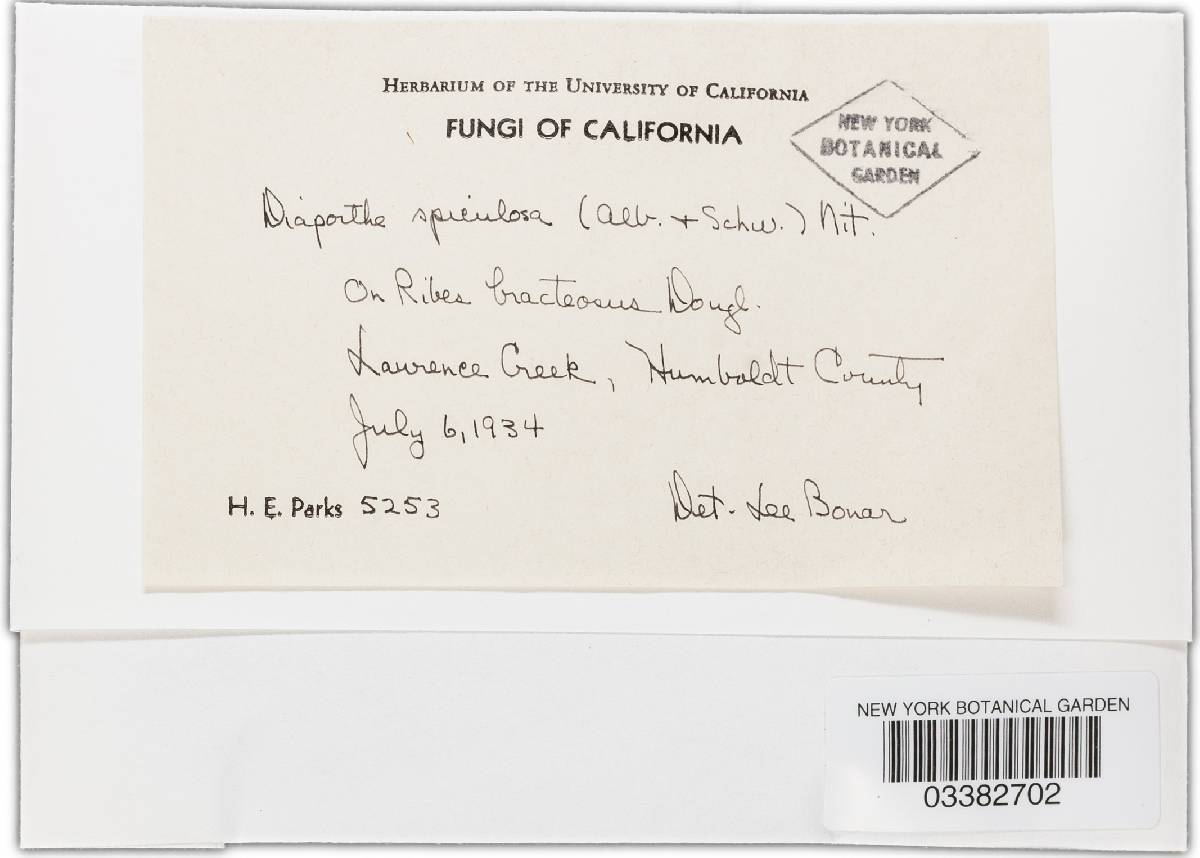 HERBARIUM OF THE UNIVERSITY OF CALIFORNIA
FUNGI OF CALIFORNIA
NEW YORK
BOTANICAL
GARDEN
Diaporthe spiculosa (Alb. + Schw.) Nit.
On Ribes bracteosus Dougl.
Lawrence Creek, Humboldt County
July 6, 1934
H. E. Parks 5253
Det. Lee Bonar
NEW YORK BOTANICAL GARDEN
03382702